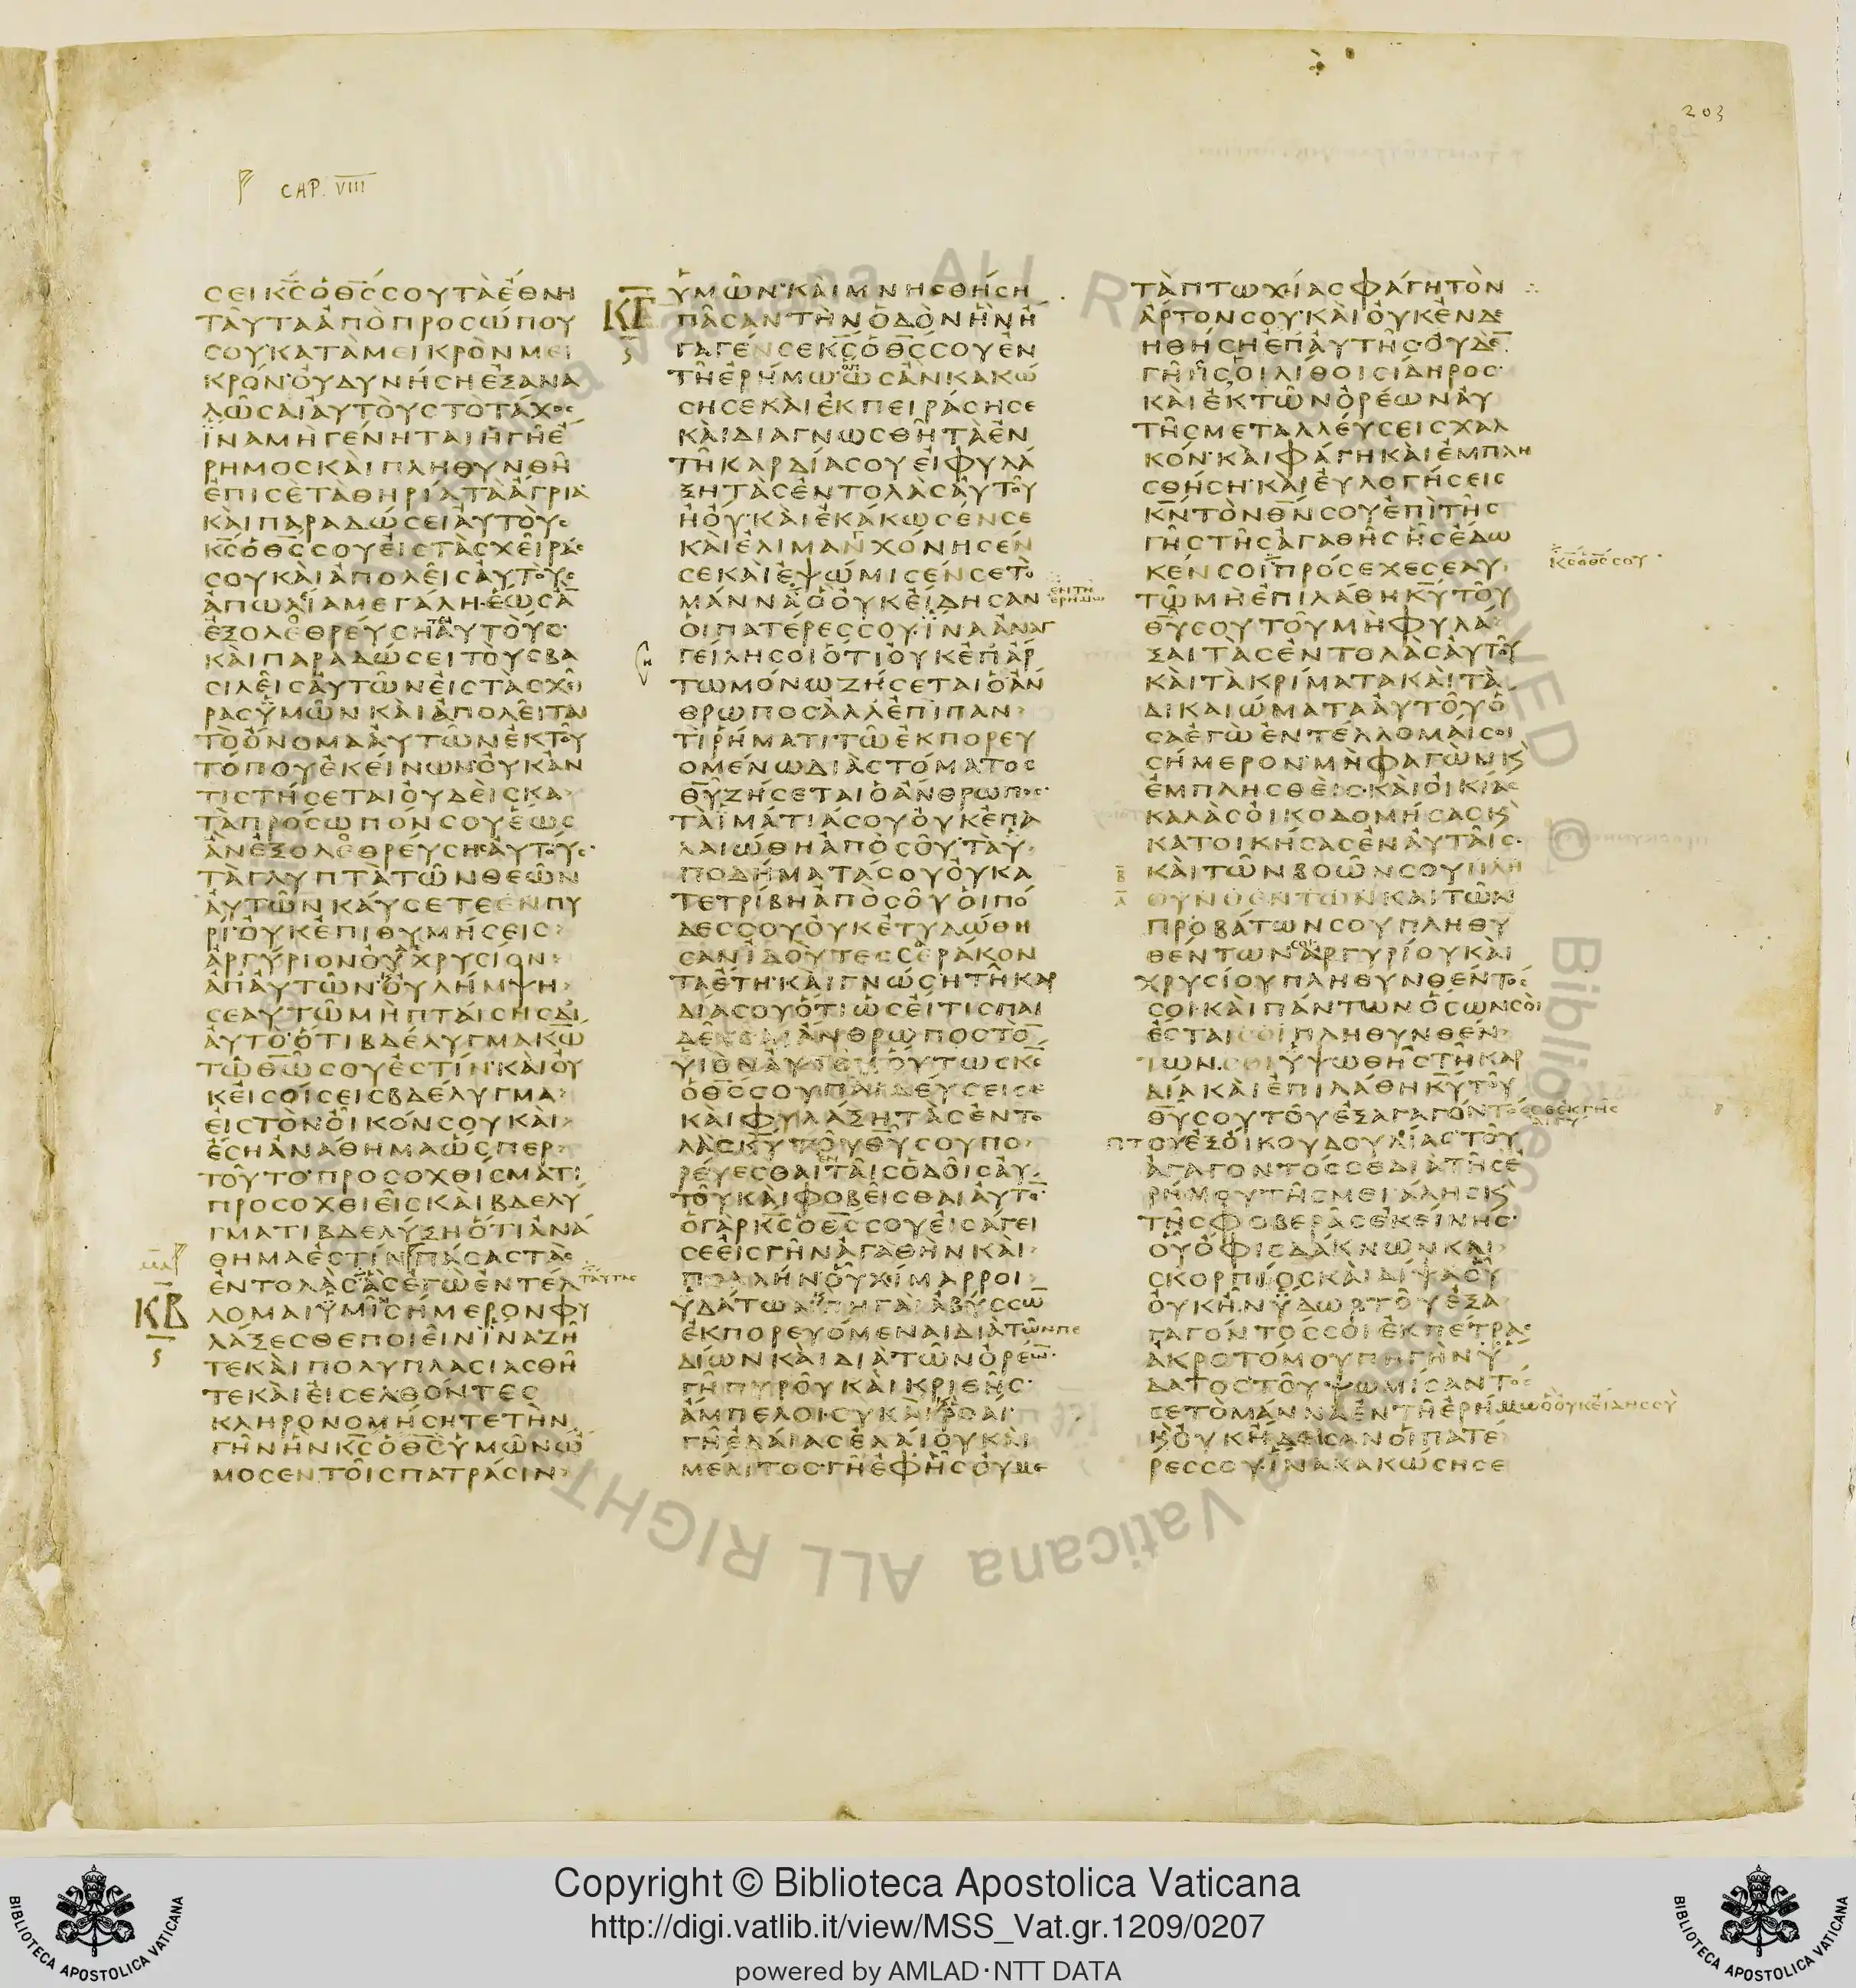 203
CAP. VIII
ϲΕΙΚϹΟΘϹϹΟΥΤΑΕΘΝΗ
ΤΑΥΤΑΑΠΟΠΡΟϹΩΠΟΥ
ϹΟΥ·ΚΑΤΑΜΕΙΚΡΟΝΜΕΙ
ΚΡΟΝ·ΟΥΔΥΝΗϹΗΕΞΑΝΑ
ΛΩϹΑΙΑΥΤΟΥϹΤΟΤΑΧΟϹ
ΙΝΑΜΗΓΕΝΗΤΑΙΗΓΗΕ
ΡΗΜΟϹΚΑΙΠΛΗΘΥΝΘΗ
ΕΠΙϹΕΤΑΘΗΡΙΑΤΑΑΓΡΙΑ·
ΚΑΙΠΑΡΑΔΩϹΕΙΑΥΤΟΥϹ
ΚϹΟΘϹϹΟΥΕΙϹΤΑϹΧΕΙΡΑϹ
ϹΟΥΚΑΙΑΠΟΛΕΙϹΑΥΤΟΥϹ
ΑΠΩΛΙΑΜΕΓΑΛΗ·ΕΩϹΑ̅
ΕΞΟΛΕΘΡΕΥϹΗΤΑΙΑΥΤΟΥϹ·
ΚΑΙΠΑΡΑΔΩϹΕΙΤΟΥϹΒΑ
ϹΙΛΕΙϹΑΥΤΩΝΕΙϹΤΑϹΧΕΙ
ΡΑϹΥΜΩΝΚΑΙΑΠΟΛΕΙΤΑΙ
ΤΟΟΝΟΜΑΑΥΤΩΝΕΚΤΟΥ
ΤΟΠΟΥΕΚΕΙΝΩΝ·ΟΥΚΑΝ
ΤΙϹΤΗϹΕΤΑΙΟΥΔΕΙϹΚΑ
ΤΑΠΡΟϹΩΠΟΝϹΟΥΕΩϹ
ΑΝΕΞΟΛΕΘΡΕΥϹΗϹΑΥΤΟΥϹ·
ΤΑΓΛΥΠΤΑΤΩΝΘΕΩΝ
ΑΥΤΩΝΚΑΥϹΕΤΕΕΝΠΥ
ΡΙ·ΟΥΚΕΠΙΘΥΜΗϹΕΙϹ
ΑΡΓΥΡΙΟΝΟΥΔΕΧΡΥϹΙΟΝ
ΑΠΑΥΤΩΝ·ΟΥΛΗΜΨΗ
ϹΕΑΥΤΩΜΗΠΤΑΙϹΗϹΔΙ
ΑΥΤΟ·ΟΤΙΒΔΕΛΥΓΜΑΚΩ
ΤΩΘΩϹΟΥΕϹΤΙΝ·ΚΑΙΟΥ
ΚΕΙϹΟΙϹΕΙϹΒΔΕΛΥΓΜΑ
ΕΙϹΤΟΝΟΙΚΟΝϹΟΥΚΑΙ
ΕϹΗΑΝΑΘΗΜΑΩϹΠΕΡ
ΤΟΥΤΟ·ΠΡΟϹΟΧΘΙϹΜΑΤΙ
ΠΡΟϹΟΧΘΙΕΙϹΚΑΙΒΔΕΛΥ
ΓΜΑΤΙΒΔΕΛΥΞΗΟΤΙΑΝΑ
ΘΗΜΑΕϹΤΙΝΠΑϹΑϹΤΑϹ
ΕΝΤΟΛΑϹΑϹΕΓΩΕΝΤΕΛ ΤΑΥΤΑϹ
ΚΒ ΛΟΜΑΙΥΜΙϹΗΜΕΡΟΝΦΥ
ΛΑΞΕϹΘΕΠΟΙΕΙΝΙΝΑΖΗ
ΤΕΚΑΙΠΟΛΥΠΛΑϹΙΑϹΘΗ
ΤΕΚΑΙΕΙϹΕΛΘΟΝΤΕϹ
ΚΛΗΡΟΝΟΜΗϹΗΤΕΤΗΝ
ΓΗΝΗΝΚϹΟΘϹΥΜΩΝΩ
ΜΟϹΕΝΤΟΙϹΠΑΤΡΑϹΙΝ
ΥΜΩΝ·ΚΑΙΜΝΗϹΘΗϹΗ
ΚΓ ΠΑϹΑΝΤΗΝΟΔΟΝΗΝΗ
ΓΑΓΕΝϹΕΚϹΟΘϹϹΟΥΕΝ
ΤΗΕΡΗΜΩ·ΟΠΩϹΑΝΚΑΚΩ
ϹΗϹΕΚΑΙΕΚΠΕΙΡΑϹΗϹΕ
ΚΑΙΔΙΑΓΝΩϹΘΗΤΑΕΝ
ΤΗΚΑΡΔΙΑϹΟΥΕΙΦΥΛΑ
ΞΗΤΑϹΕΝΤΟΛΑϹΑΥΤΟΥ
ΗΟΥ·ΚΑΙΕΚΑΚΩϹΕΝϹΕ
ΚΑΙΕΛΙΜΑΓΧΟΝΗϹΕΝ
ϹΕΚΑΙΕΨΩΜΙϹΕΝϹΕΤΟ
ΜΑΝΝΑΟΟΥΚΕΙΔΗϹΑΝ ΕΝΤΗ ΕΡΗΜΩ
ΟΙΠΑΤΕΡΕϹϹΟΥ·ΙΝΑΑΝΑΓ
ΓΕΙΛΗϹΟΙΟΤΙΟΥΚΕΠΑΡ
ΤΩΜΟΝΩΖΗϹΕΤΑΙΟΑΝ
ΘΡΩΠΟϹΑΛΛΕΠΙΠΑΝ
ΤΙΡΗΜΑΤΙΤΩΕΚΠΟΡΕΥ
ΟΜΕΝΩΔΙΑϹΤΟΜΑΤΟϹ
ΘΥΖΗϹΕΤΑΙΟΑΝΘΡΩΠΟϹ·
ΤΑΙΜΑΤΙΑϹΟΥΟΥΚΕΠΑ
ΛΑΙΩΘΗΑΠΟϹΟΥ·ΤΑΥ
ΠΟΔΗΜΑΤΑϹΟΥΟΥΚΑ
ΤΕΤΡΙΒΗΑΠΟϹΟΥΟΙΠΟ
ΔΕϹϹΟΥΟΥΚΕΤΥΛΩΘΗ
ϹΑΝΙΔΟΥΤΕϹϹΕΡΑΚΟΝ
ΤΑΕΤΗ·ΚΑΙΓΝΩϹΗΤΗΚΑΡ
ΔΙΑϹΟΥΟΤΙΩϹΕΙΤΙϹΠΑΙ
ΑΝΘΡΩΠΟϹΤΟ
ΟΘϹϹΟΥΠΑΙΔΕΥϹΕΙϹΕ
ΚΑΙΦΥΛΑΞΗΤΑϹΕΝΤΟ
ΛΑϹΚΥΤΟΥΘΥϹΟΥΠΟ
ΡΕΥΕϹΘΑΙΕΝΤΑΙϹΟΔΟΙϹΑΥ
ΤΟΥΚΑΙΦΟΒΕΙϹΘΑΙΑΥΤΟ̅·
ΟΓΑΡΚϹΟΘϹϹΟΥΕΙϹΑΓΕΙ
ϹΕΕΙϹΓΗΝΑΓΑΘΗΝΚΑΙ
ΠΟΛΛΗΝ·ΟΥΧΙΜΑΡΡΟΙ
ΥΔΑΤΩΝΠΗΓΑΙΑΒΥϹϹΩ̅
ΕΚΠΟΡΕΥΟΜΕΝΑΙΔΙΑΤΩΝΠΕ
ΔΙΩΝΚΑΙΔΙΑΤΩΝΟΡΕΩ̅·
ΓΗΠΥΡΟΥΚΑΙΚΡΙΘΗϹ·
ΑΜΠΕΛΟΙ·ϹΥΚΑΙΡΟΑΙ·
ΓΗΕΛΑΙΑϹΕΛΑΙΟΥΚΑΙ
ΜΕΛΙΤΟϹ·ΓΗΕΦΗϹΟΥΜΕ
ΤΑΠΤΩΧΙΑϹΦΑΓΗΤΟΝ
ΑΡΤΟΝϹΟΥ·ΚΑΙΟΥΚΕΝΔΕ
ΗΘΗϹΗΕΠΑΥΤΗϹ·ΟΥΔΕ̅
ΓΗΗϹΟΙΛΙΘΟΙϹΙΔΗΡΟϹ·
ΚΑΙΕΚΤΩΝΟΡΕΩΝΑΥ
ΤΗϹΜΕΤΑΛΛΕΥϹΕΙϹΧΑΛ
ΚΟΝ·ΚΑΙΦΑΓΗΚΑΙΕΜΠΛΗ
ϹΘΗϹΗ·ΚΑΙΕΥΛΟΓΗϹΕΙϹ
ΚΝΤΟΝΘΝϹΟΥΕΠΙΤΗϹ
ΓΗϹΤΗϹΑΓΑΘΗϹΗϹΕΔΩ
ΚΕΝϹΟΙΠΡΟϹΕΧΕϹΕΑΥ ΚϹΟΘϹϹΟΥ·
ΤΩΜΗΕΠΙΛΑΘΗΚΥΤΟΥ
ΘΥϹΟΥΤΟΥΜΗΦΥΛΑ
ΞΑΙΤΑϹΕΝΤΟΛΑϹΑΥΤΟΥ
ΚΑΙΤΑΚΡΙΜΑΤΑΚΑΙΤΑ
ΔΙΚΑΙΩΜΑΤΑΑΥΤΟΥΟ
ϹΑΕΓΩΕΝΤΕΛΛΟΜΑΙϹΟΙ
ϹΗΜΕΡΟΝ·ΜΗΦΑΓΩΝΚ
ΕΜΠΛΗϹΘΕΙϹ·ΚΑΙΟΙΚΙΑϹ
ΚΑΛΑϹΟΙΚΟΔΟΜΗϹΑϹΚ
ΚΑΤΟΙΚΗϹΑϹΕΝΑΥΤΑΙϹ·
ΚΑΙΤΩΝΒΟΩΝϹΟΥΠΛΗ
ΘΥΝΘΕΝΤΩΝΚΑΙΤΩΝ
ΠΡΟΒΑΤΩΝϹΟΥΠΛΗΘΥ
ΘΕΝΤΩΝϹΟΙΑΡΓΥΡΙΟΥΚΑΙ
ΧΡΥϹΙΟΥΠΛΗΘΥΝΘΕΝΤΟϹ
ϹΟΙ·ΚΑΙΠΑΝΤΩΝΟϹΩΝϹΟΙ
ΕϹΤΑΙϹΟΙΠΛΗΘΥΝΘΕΝ
ΤΩΝ·ϹΟΙΥΨΩΘΗϹΤΗΚΑΡ
ΔΙΑΚΑΙΕΠΙΛΑΘΗΚΥΤΟΥ
ΘΥϹΟΥΤΟΥΕΞΑΓΑΓΟΝΤΟϹϹΕΕΚΓΗϹ
ΑΙΓΥ
ΠΤΟΥΕΞΟΙΚΟΥΔΟΥΛΙΑϹ·ΤΟΥ
ΑΓΑΓΟΝΤΟϹϹΕΔΙΑΤΗϹΕ
ΡΗΜΟΥΤΗϹΜΕΓΑΛΗϹΚ
ΤΗϹΦΟΒΕΡΑϹΕΚΕΙΝΗϹ·
ΟΥΟΦΙϹΔΑΚΝΩΝΚΑΙ
ϹΚΟΡΠΙΟϹΚΑΙΔΙΨΑΟΥ
ΟΥΚΗΝΥΔΩΡΤΟΥΕΞΑ
ΓΑΓΟΝΤΟϹϹΟΙΕΚΠΕΤΡΑϹ
ΑΚΡΟΤΟΜΟΥΠΗΓΗΝΥ
ΔΑΤΟϹ·ΤΟΥΨΩΜΙϹΑΝΤΟϹ
ϹΕΤΟΜΑΝΝΑΕΝΤΗΕΡΗΜΩΟΟΥΚΕΙΔΗϹϹΥ
ΚΟΥΚΗΔΕΙϹΑΝΟΙΠΑΤΕ
ΡΕϹϹΟΥ·ΙΝΑΚΑΚΩϹΗϹΕ
Copyright © Biblioteca Apostolica Vaticana
http://digi.vatlib.it/view/MSS_Vat.gr.1209/0207
powered by AMLAD·NTT DATA
BIBLIOTECA APOSTOLICA VATICANA
BIBLIOTECA APOSTOLICA VATICANA